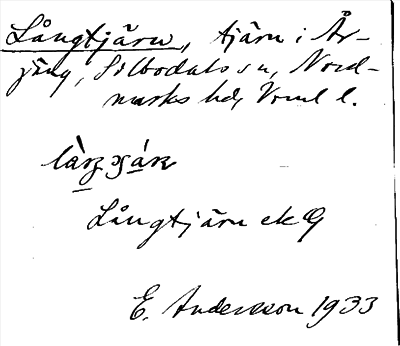 Långtjärn, tjärn i År-
jäng, Silbodals sn, Nord-
marks hd, Vrml l.
Långtjärn ek
E. Andersson 1933